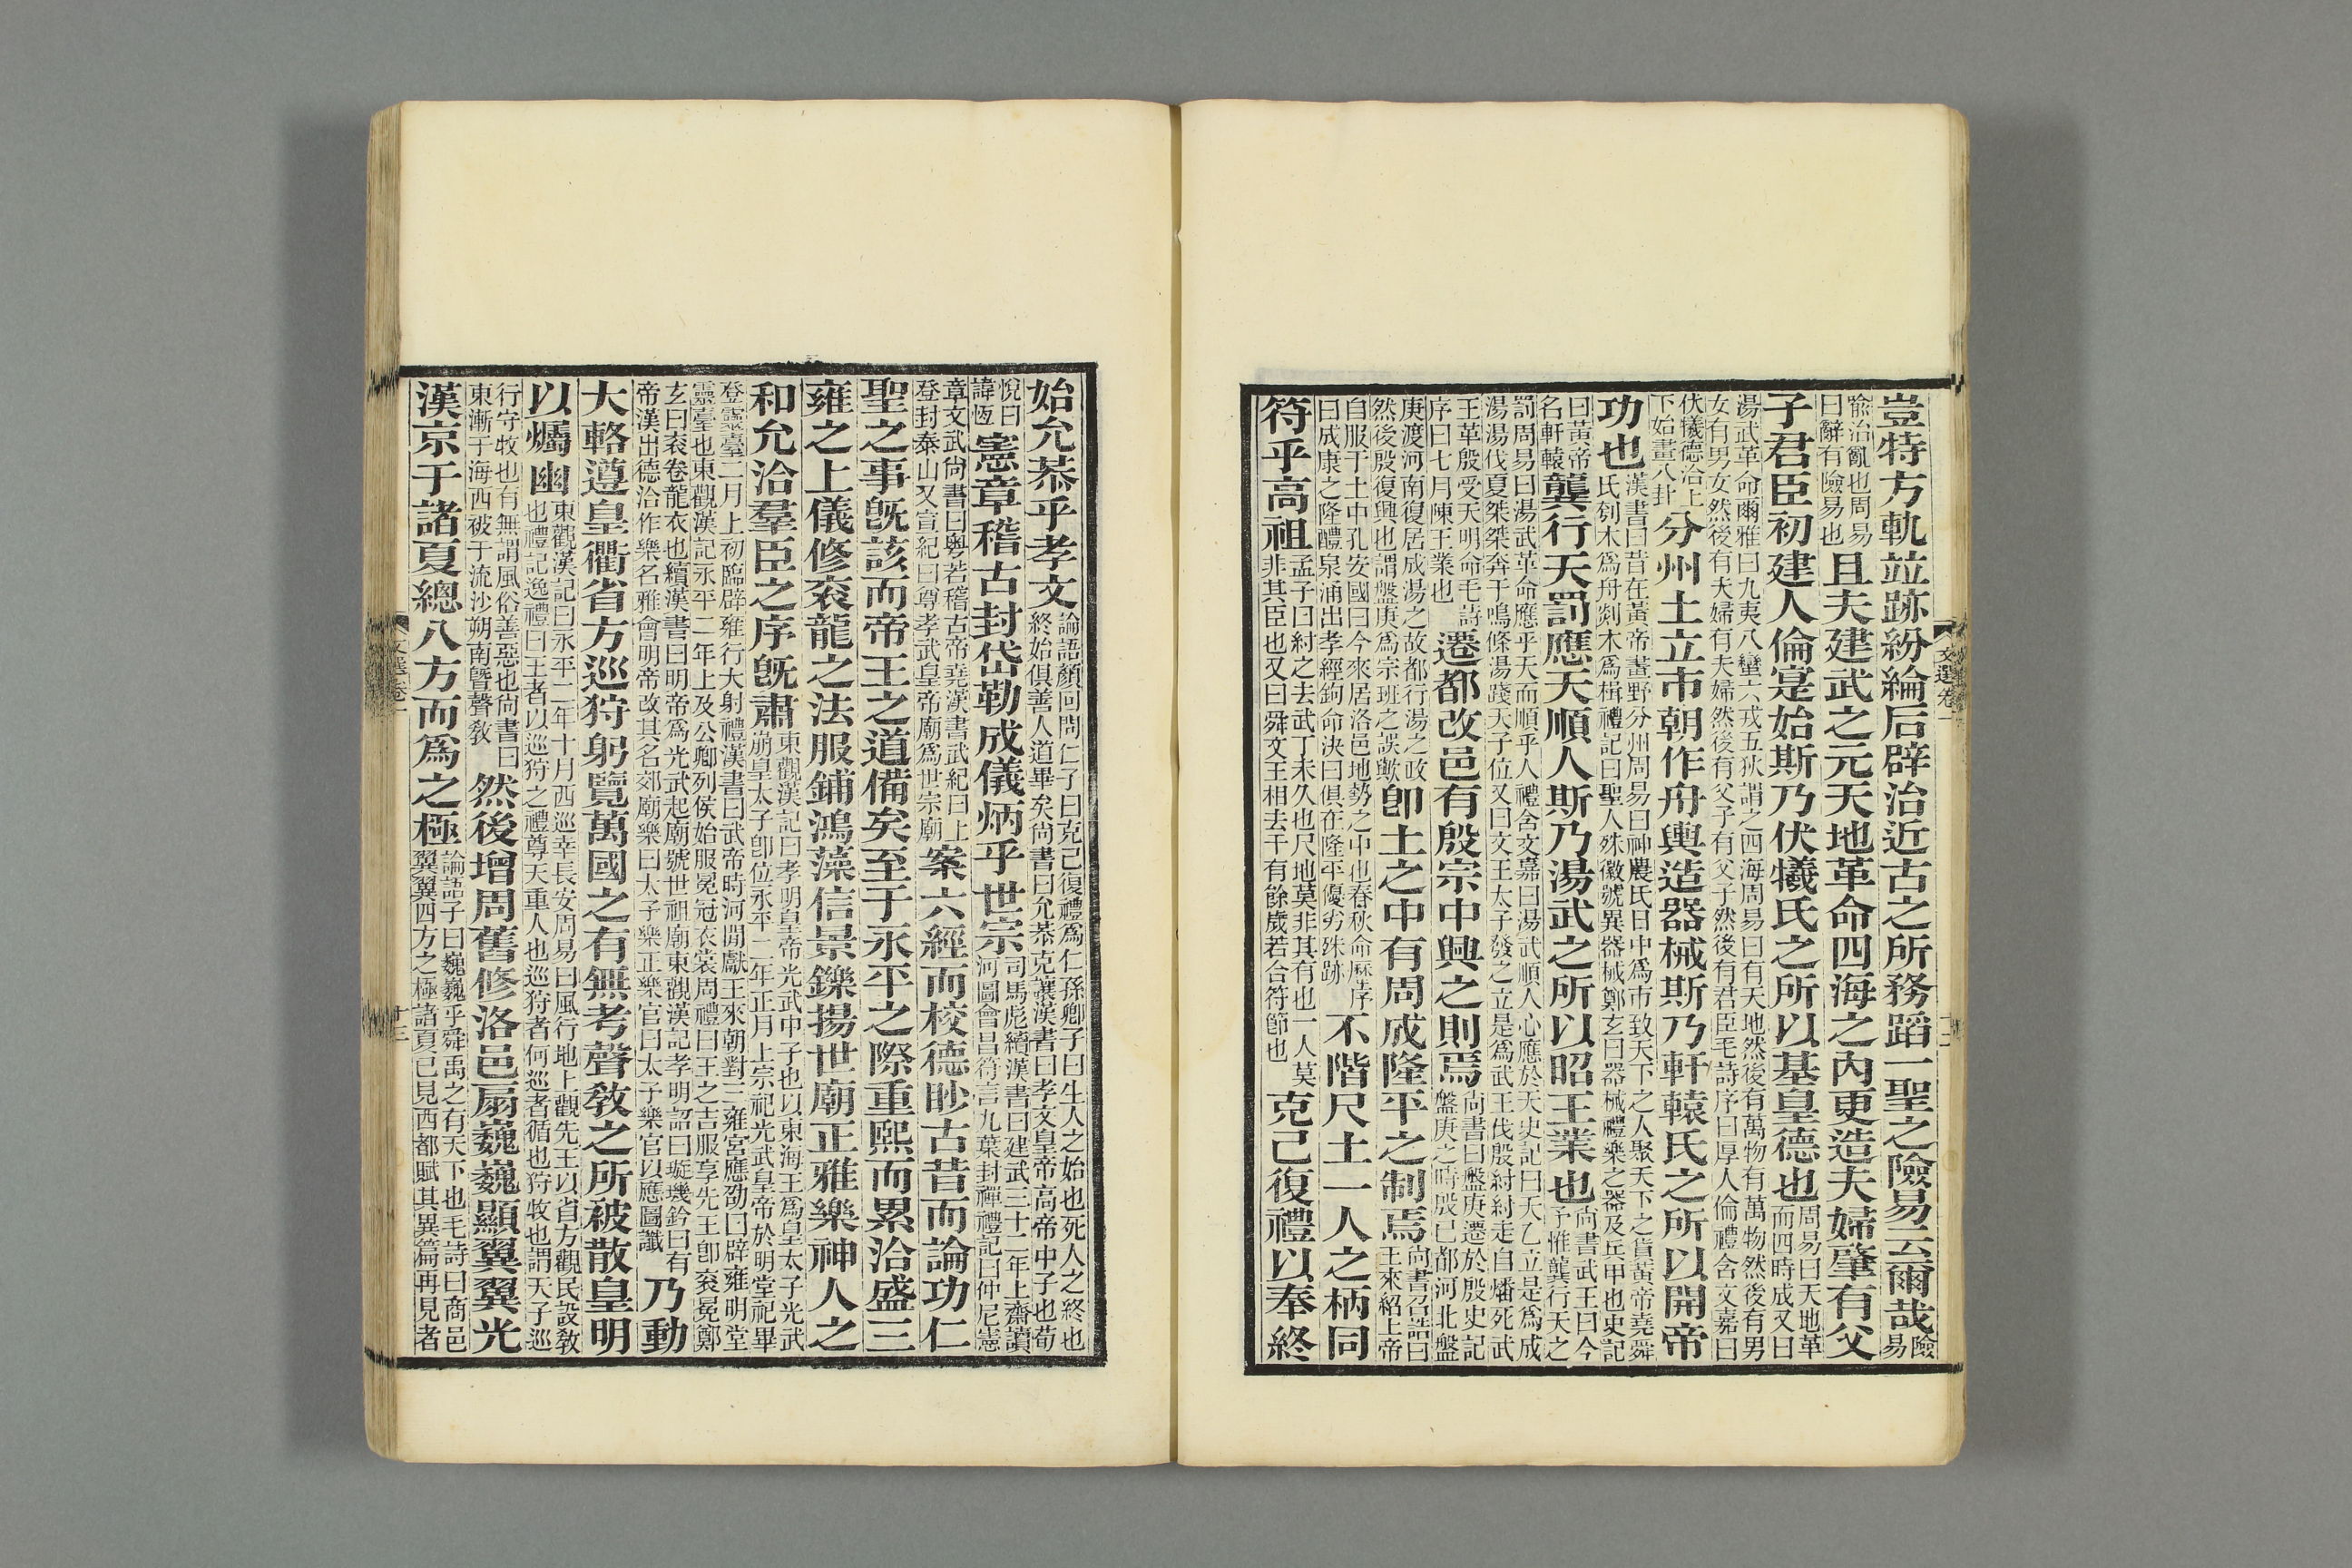 豈特方軌竝跡紛綸后辟治近古之所務蹈一聖之險易云爾哉險易
喩治亂也周易曰辭有險易也且夫建武之元天地革命四海之內更造夫婦肇有父
子君臣初建人倫寔始斯乃伏犧氏之所以基皇德也周易曰天地革而四時成又曰
湯武革命爾雅曰九夷八蠻六戎五狄謂之四海周易曰有天地然後有萬物有萬物然後有男女有男女然後有夫婦有夫婦然後有父子有父子然後有君臣毛詩序曰厚人倫禮含文嘉曰
伏犧德洽上下始畫八卦分州土立市朝作舟輿造器械斯乃軒轅氏之所以開帝
功也漢書曰昔在黃帝畫野分州周易曰神農氏日中爲市致天下之人聚天下之貨黃帝堯舜氏刳木爲舟剡木爲楫禮記曰聖人殊徽號異器械鄭玄曰器械禮樂之器及兵甲也史記
曰黃帝名軒轅龔行天罰應天順人斯乃湯武之所以昭王業也尚書武王曰今予惟龔行天之
罰周易曰湯武革命應乎天而順乎人禮含文嘉曰湯武順人心應於天史記曰天乙立是爲成湯湯伐夏桀桀奔于鳴條湯踐天子位又曰文王太子發之立是爲武王伐殷紂紂走自燔死武
王革殷受天明命毛詩序曰七月陳王業也遷都改邑有殷宗中興之則焉尚書曰盤庚遷於殷史記盤庚之時殷已都河北盤
庚渡河南復居成湯之故都行湯之政然後殷復興也謂盤庚爲宗班之誤歟卽土之中有周成隆平之制焉尚書召誥曰王來紹上帝
自服于土中孔安國曰今來居洛邑地勢之中也春秋命厤序曰成康之隆醴泉涌出孝經鉤命決曰俱在隆平優劣殊跡不階尺土一人之柄同
符乎高祖孟子曰紂之去武丁未久也尺地莫非其有也一人莫非其臣也又曰舜文王相去千有餘歲若合符節也克己復禮以奉終
始允恭乎孝文論語顏回問仁子曰克己復禮爲仁孫卿子曰生人之始也死人之終也終始俱善人道畢矣尚書曰允恭克讓漢書曰孝文皇帝高帝中子也荀
悅曰諱恆憲章稽古封岱勒成儀炳乎世宗司馬彪續漢書曰建武三十二年上齋讀河圖會昌符言九葉封禪禮記曰仲尼憲
章文武尚書曰粵若稽古帝堯漢書武紀曰上登封泰山又宣紀曰尊孝武皇帝廟爲世宗廟案六經而校德眇古昔而論功仁
聖之事旣該而帝王之道備矣至于永平之際重熙而累洽盛三
雍之上儀修衮龍之法服鋪鴻藻信景鑠揚世廟正雅樂神人之
和允洽羣臣之序旣肅東觀漢記曰孝明皇帝光武中子也以東海王爲皇太子光武崩皇太子卽位永平二年正月上宗祀光武皇帝於明堂祀畢
登靈臺二月上初臨辟雍行大射禮漢書曰武帝時河閒獻王來朝對三雍宮應劭曰辟雍明堂靈臺也東觀漢記永平二年上及公卿列侯始服冕冠衣裳周禮曰王之吉服享先王卽衮冕鄭
玄曰衮卷龍衣也續漢書曰明帝爲光武起廟號世祖廟東觀漢記孝明詔曰璇璣鈐曰有帝漢出德洽作樂名雅會明帝改其名郊廟樂曰太予樂正樂官曰太予樂官以應圖讖乃動
大輅遵皇衢省方巡狩躬覽萬國之有無考聲敎之所被散皇明
以燭幽東觀漢記曰永平二年十月西巡幸長安周易曰風行地上觀先王以省方觀民設敎也禮記逸禮曰王者以巡狩之禮尊天重人也巡狩者何巡者循也狩牧也謂天子巡
行守牧也有無謂風俗善惡也尚書曰東漸于海西被于流沙朔南曁聲敎然後增周舊修洛邑扇巍巍顯翼翼光
漢京于諸夏總八方而爲之極論語子曰巍巍乎舜禹之有天下也毛詩曰商邑翼翼四方之極諸夏已見西都賦其異篇再見者
文選卷一